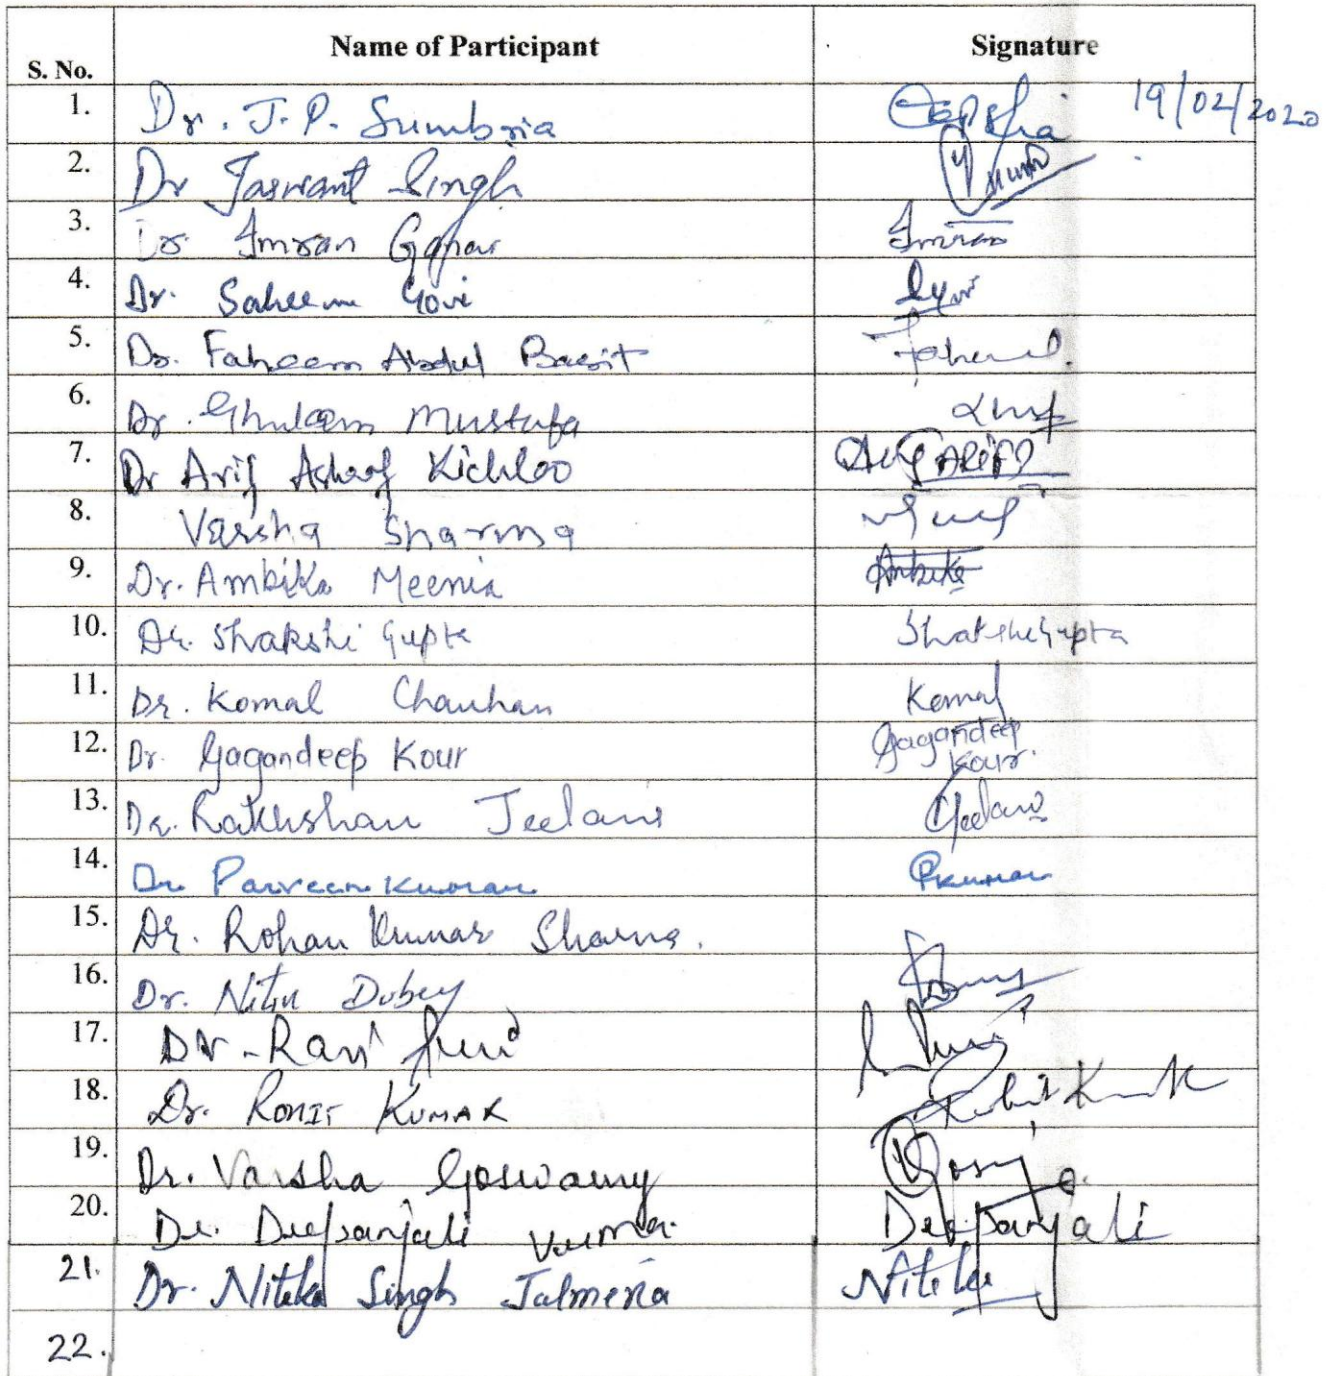 S. No. Name of Participant Signature
1. Dr. J. P. Sumbria 19/02/2020
2. Dr Jaswant Singh
3. Dr. Imran Imran
4. Dr. Saleem
5. Dr. Faheem Abdul Basit Faheem
6. Dr. Ghulam Mustafa
7. Dr Arif Ashraf Kichloo ARIF
8. Varsha Sharma
9. Dr. Ambika Meenia Ambika
10. Dr. Shakshi Gupta Shakshi Gupta
11. Dr. Komal Chauhan Komal
12. Dr. Gagandeep Kour Gagandeep Kour
13. Dr. Rakhshan Jeelani Jeelani
14. Dr Parveen Kumar PKumar
15. Dr. Rohan Kumar Sharma.
16. Dr. Nitin Dubey
17. Dr. Ravi
18. Dr. Rohit Kumar
19. Dr. Varsha Goswamy
20. Dr. Deepanjali Verma. Deepanjali
21. Dr. Nitika Singh Jalmeria Nitika
22.